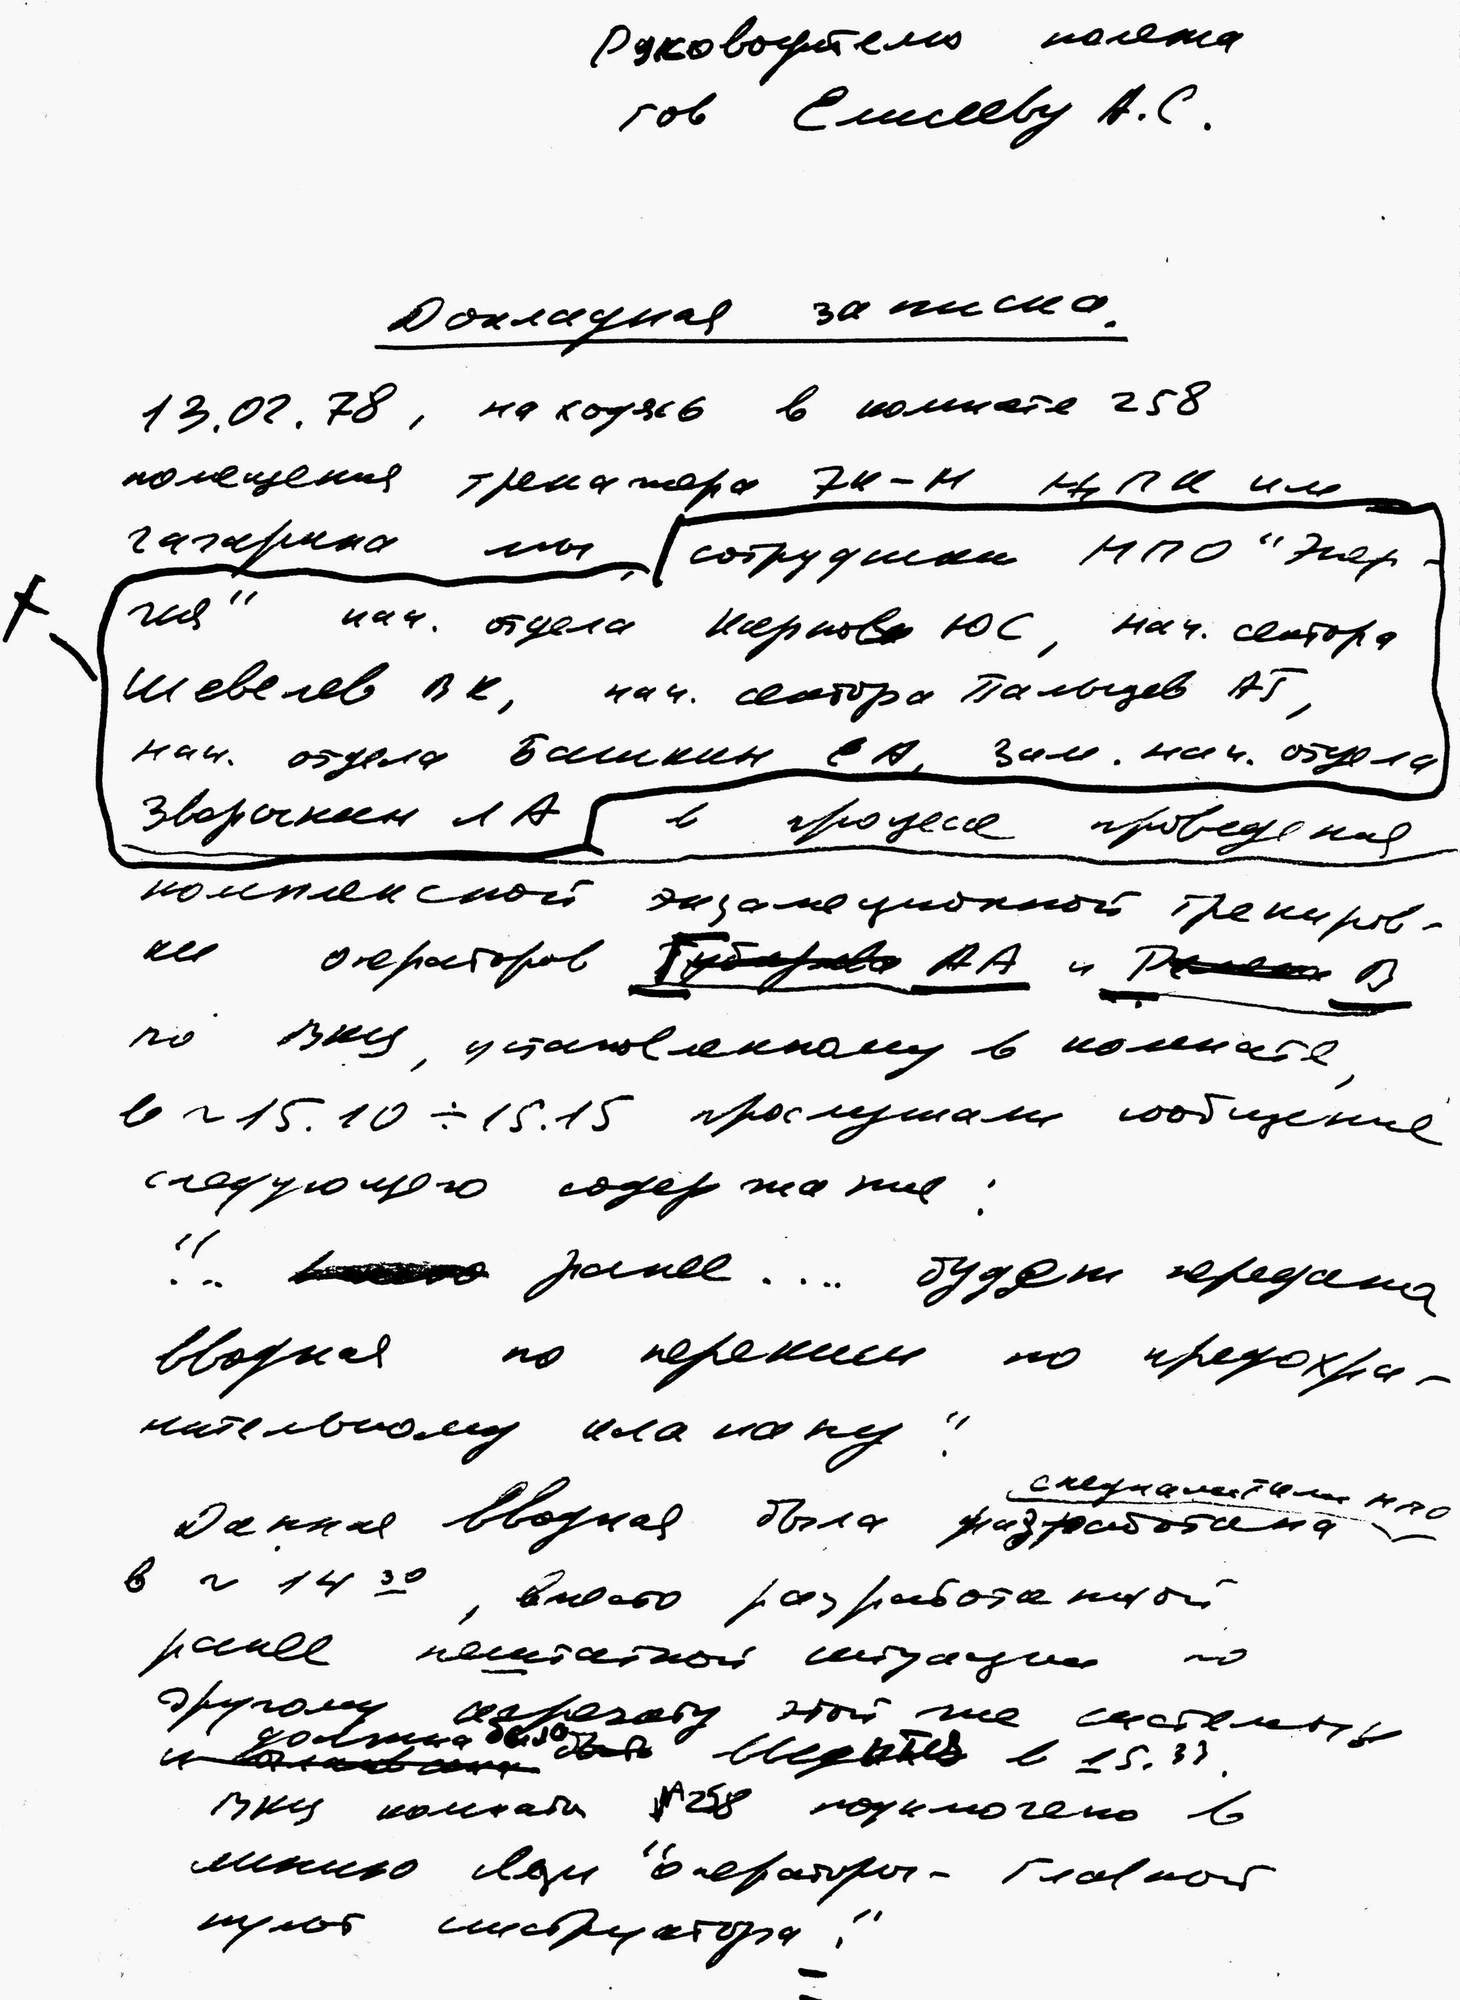 Руководителю полета
тов Елисееву А.С.
Докладная записка.
13.02.78, находясь в комнате 258
помещения тренажера 7К-Н ЦПК им
Гагарина мы, сотрудники НПО "Энер-
гия" нач. отдела Карпов ЮС, нач. сектора
Шевелев ВК, нач. сектора Пальцев АГ,
нач. отдела Башкин ЕА, Зам. нач. отдела
Зворыкин ЛА в процессе проведения
комплексной экзамеционной трениров-
ки операторов Губарева АА и Ремек В
по ВКЦ, установленному в комнате,
в ~ 15.10 ÷ 15.15 прослушали сообщение
следующего содержание:
"... ранее .... будет передана
вводная по перекиси по предохра-
нительному клапану".
специалистами НПО
Данная вводная была разработана
в ~ 14 30, вместо разработанной
ранее нештатной ситуации по
другому агрегату этой же системы
должна была
и быть в 15.33.
ВКЦ комнаты №258 подключено в
линию связи "операторы - Главной
пульт инструктора".